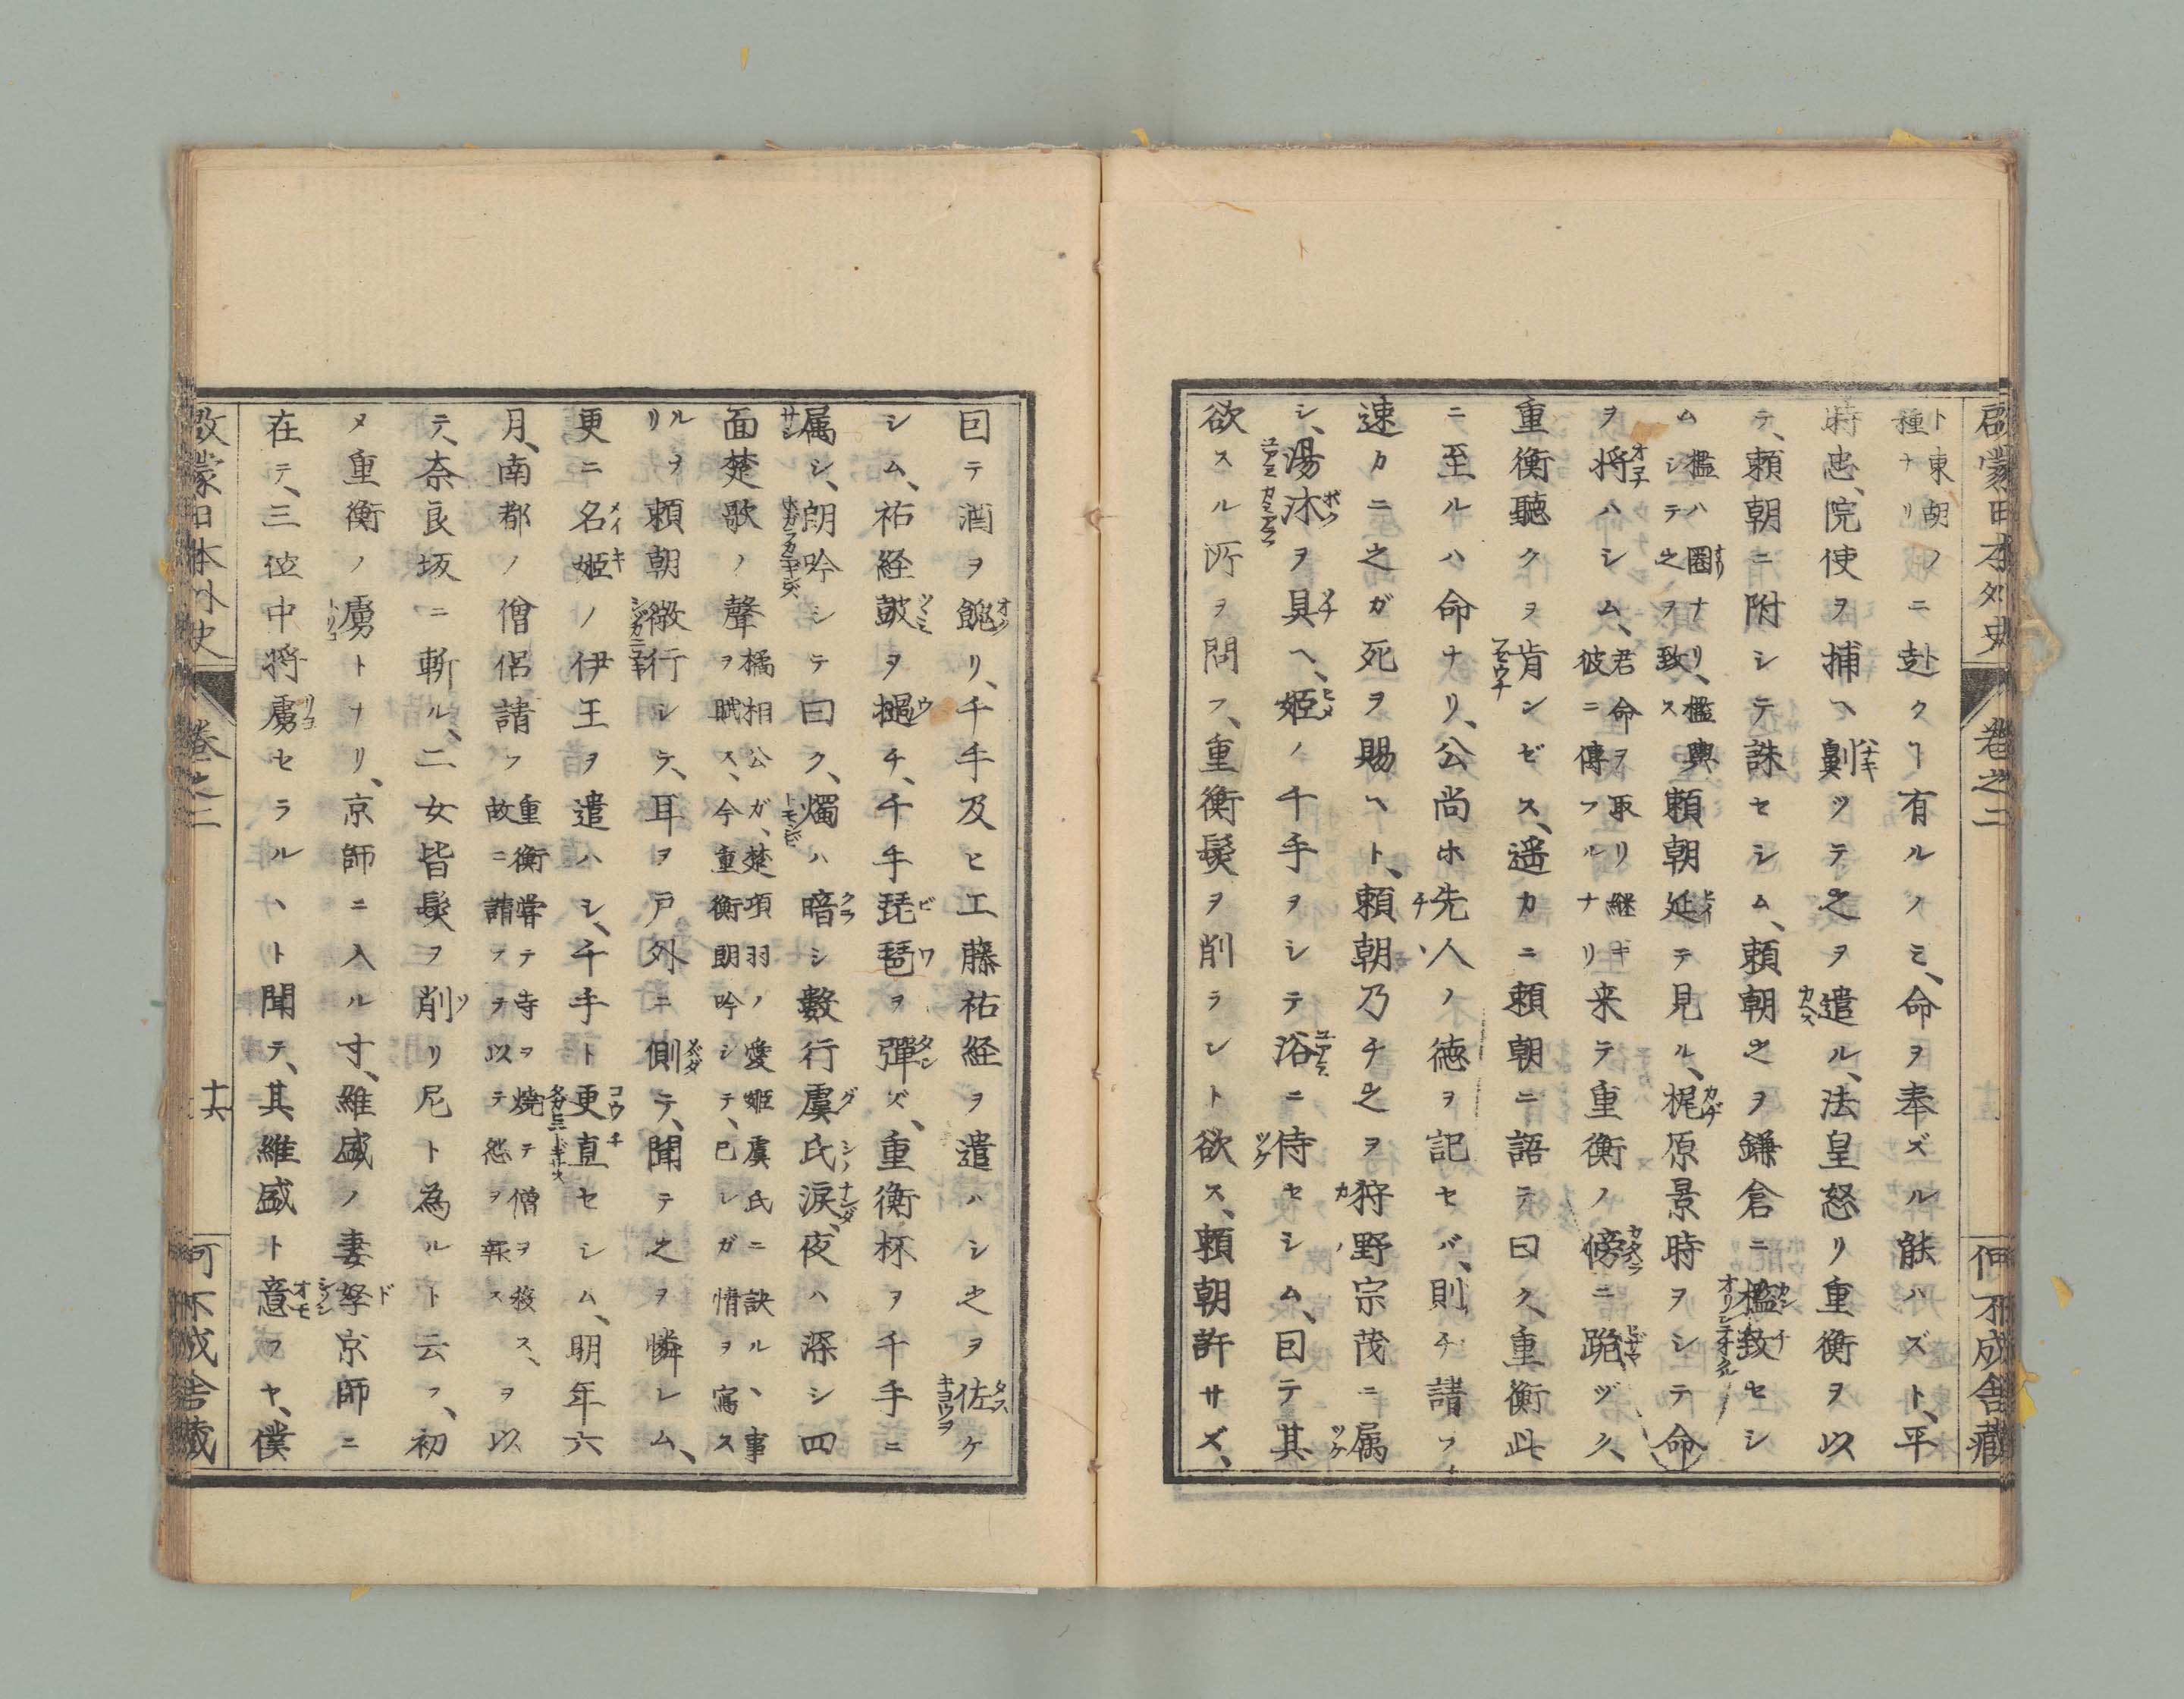 啓蒙日本外史 巻之二 何不成舎藏
ト東胡ノ
種ナリ
ニ赴クヿ有ルノミ、命ヲ奉ズル能ハズト、平
時忠、院使ヲ捕ヘ劓ツテ之ヲ遣ル、法皇怒リ重衡ヲ以
テ、頼朝ニ附シテ誅セシム、頼朝之ヲ鎌倉ニ檻致セシ
ム
檻ハ圈ナリ、檻輿
シテ之ヲ致ス
頼朝延テ見ル、梶原景時ヲシテ命
ヲ将ハシム、
君命ヲ取リ継ギ
彼ニ傳フルナリ
来テ重衡ノ傍ニ跪ヅク、
重衡聽クヲ肯ンゼス、遥カニ頼朝ニ語テ曰ク、重衡此
ニ至ルハ命ナリ、公尚ホ先人ノ徳ヲ記セバ、則チ請フ
速カニ之ガ死ヲ賜ヘト、頼朝乃チ之ヲ狩野宗茂ニ属
シ、湯沐ヲ具ヘ、姫ノ千手ヲシテ浴ニ侍セシム、因テ其
欲スル所ヲ問フ、重衡髪ヲ削ラント欲ス、頼朝許サズ、
因テ酒ヲ餽リ、千手及ヒ工藤祐経ヲ遣ハシ之ヲ佐ケ
シム、祐経鼓ヲ撾チ、千手琵琶ヲ彈ズ、重衡杯ヲ千手ニ
属シ、朗吟シテ曰ク、燭ハ暗シ數行虞氏涙、夜ハ深シ四
面楚歌ノ聲
橘相公ガ、楚項羽ノ愛姫虞氏ニ訣ル、事
ヲ賦ス、今重衡朗吟シテ、已レガ情ヲ寫ス
ル
リ
ヲ頼朝微行シテ、耳ヲ戸外ニ側テ、聞テ之ヲ憐レム、
更ニ名姫ノ伊王ヲ遣ハシ、千手ト更直セシム、明年六
月、南都ノ僧侶請フ
重衡嘗テ寺ヲ焼テ僧ヲ殺ス、
故ニ請フテ以テ怨ヲ報ス
ヲ以
テ、奈良坂ニ斬ル、二女皆髪ヲ削リ尼ト為ルト云フ、初
メ重衡ノ虜トナリ、京師ニ入ル寸、維盛ノ妻孥京師ニ
在テ、三位中将虜セラルヽト聞テ、其維盛ト意フヤ、僕
啓蒙日本外史 巻之二 十六 何不成舎藏